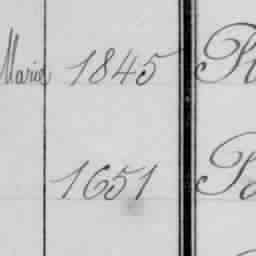 Maria 1845
1651